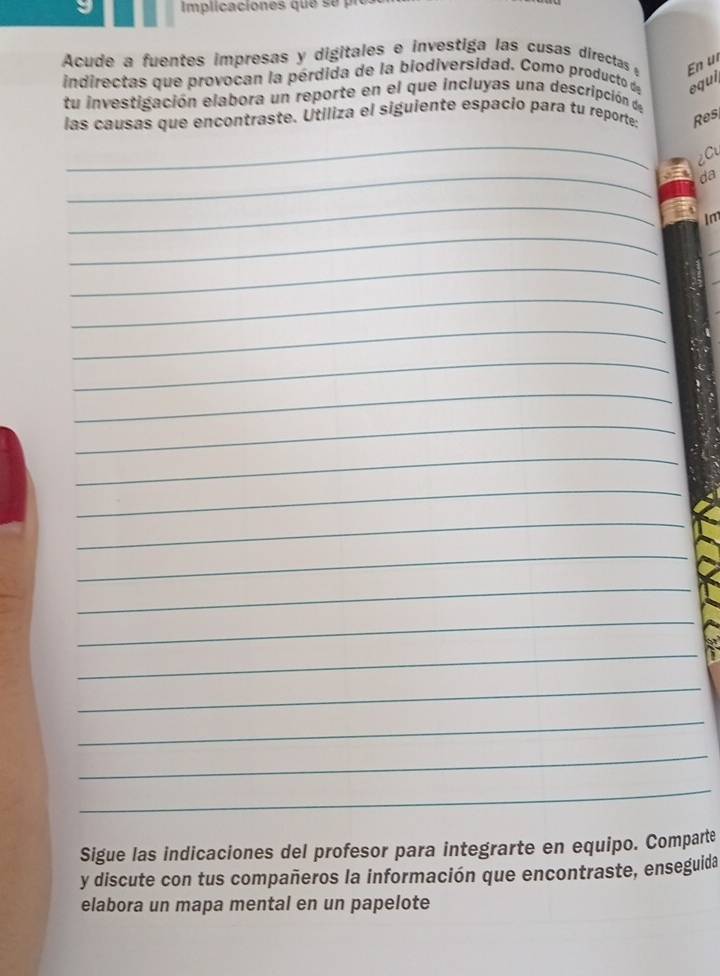 9
Implicaciones que se
Acude a fuentes impresas y digitales e investiga las cusas directas e
indirectas que provocan la pérdida de la biodiversidad. Como producto de
tu investigación elabora un reporte en el que incluyas una descripción de
las causas que encontraste. Utiliza el siguiente espacio para tu reporte:
Sigue las indicaciones del profesor para integrarte en equipo. Comparte
y discute con tus compañeros la información que encontraste, enseguida
elabora un mapa mental en un papelote
En un
equi
Res
¿Cu
da
Im